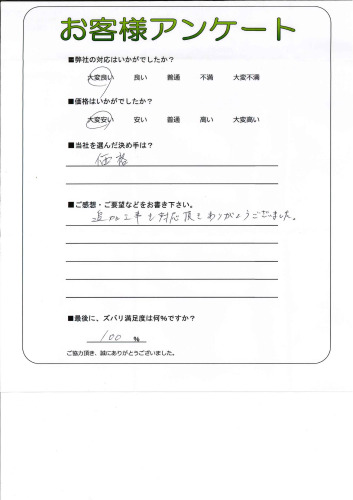 お客様アンケート
■弊社の対応はいかがでしたか?
大変良い 良い 普通 不満 大変不満
■価格はいかがでしたか?
大変安い 安い 普通 高い 大変高い
■当社を選んだ決め手は?
価格
■ご感想・ご要望などをお書き下さい。
追加工事も対応頂きありがとうございました。
■最後に、ズバリ満足度は何%ですか?
100 %
ご協力頂き、誠にありがとうございました。